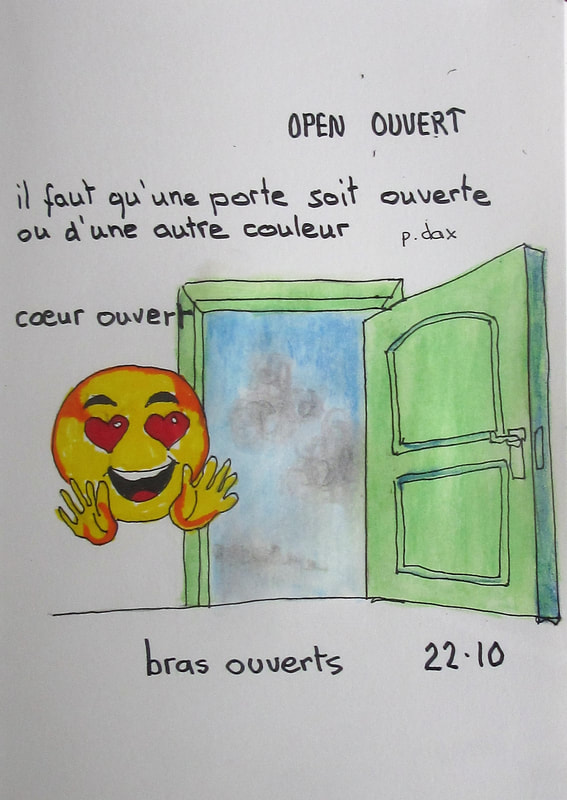 OPEN OUVERT
il faut qu'une porte soit ouverte
ou d'une autre couleur
p.dax
cœur ouvert
bras ouverts
22.10